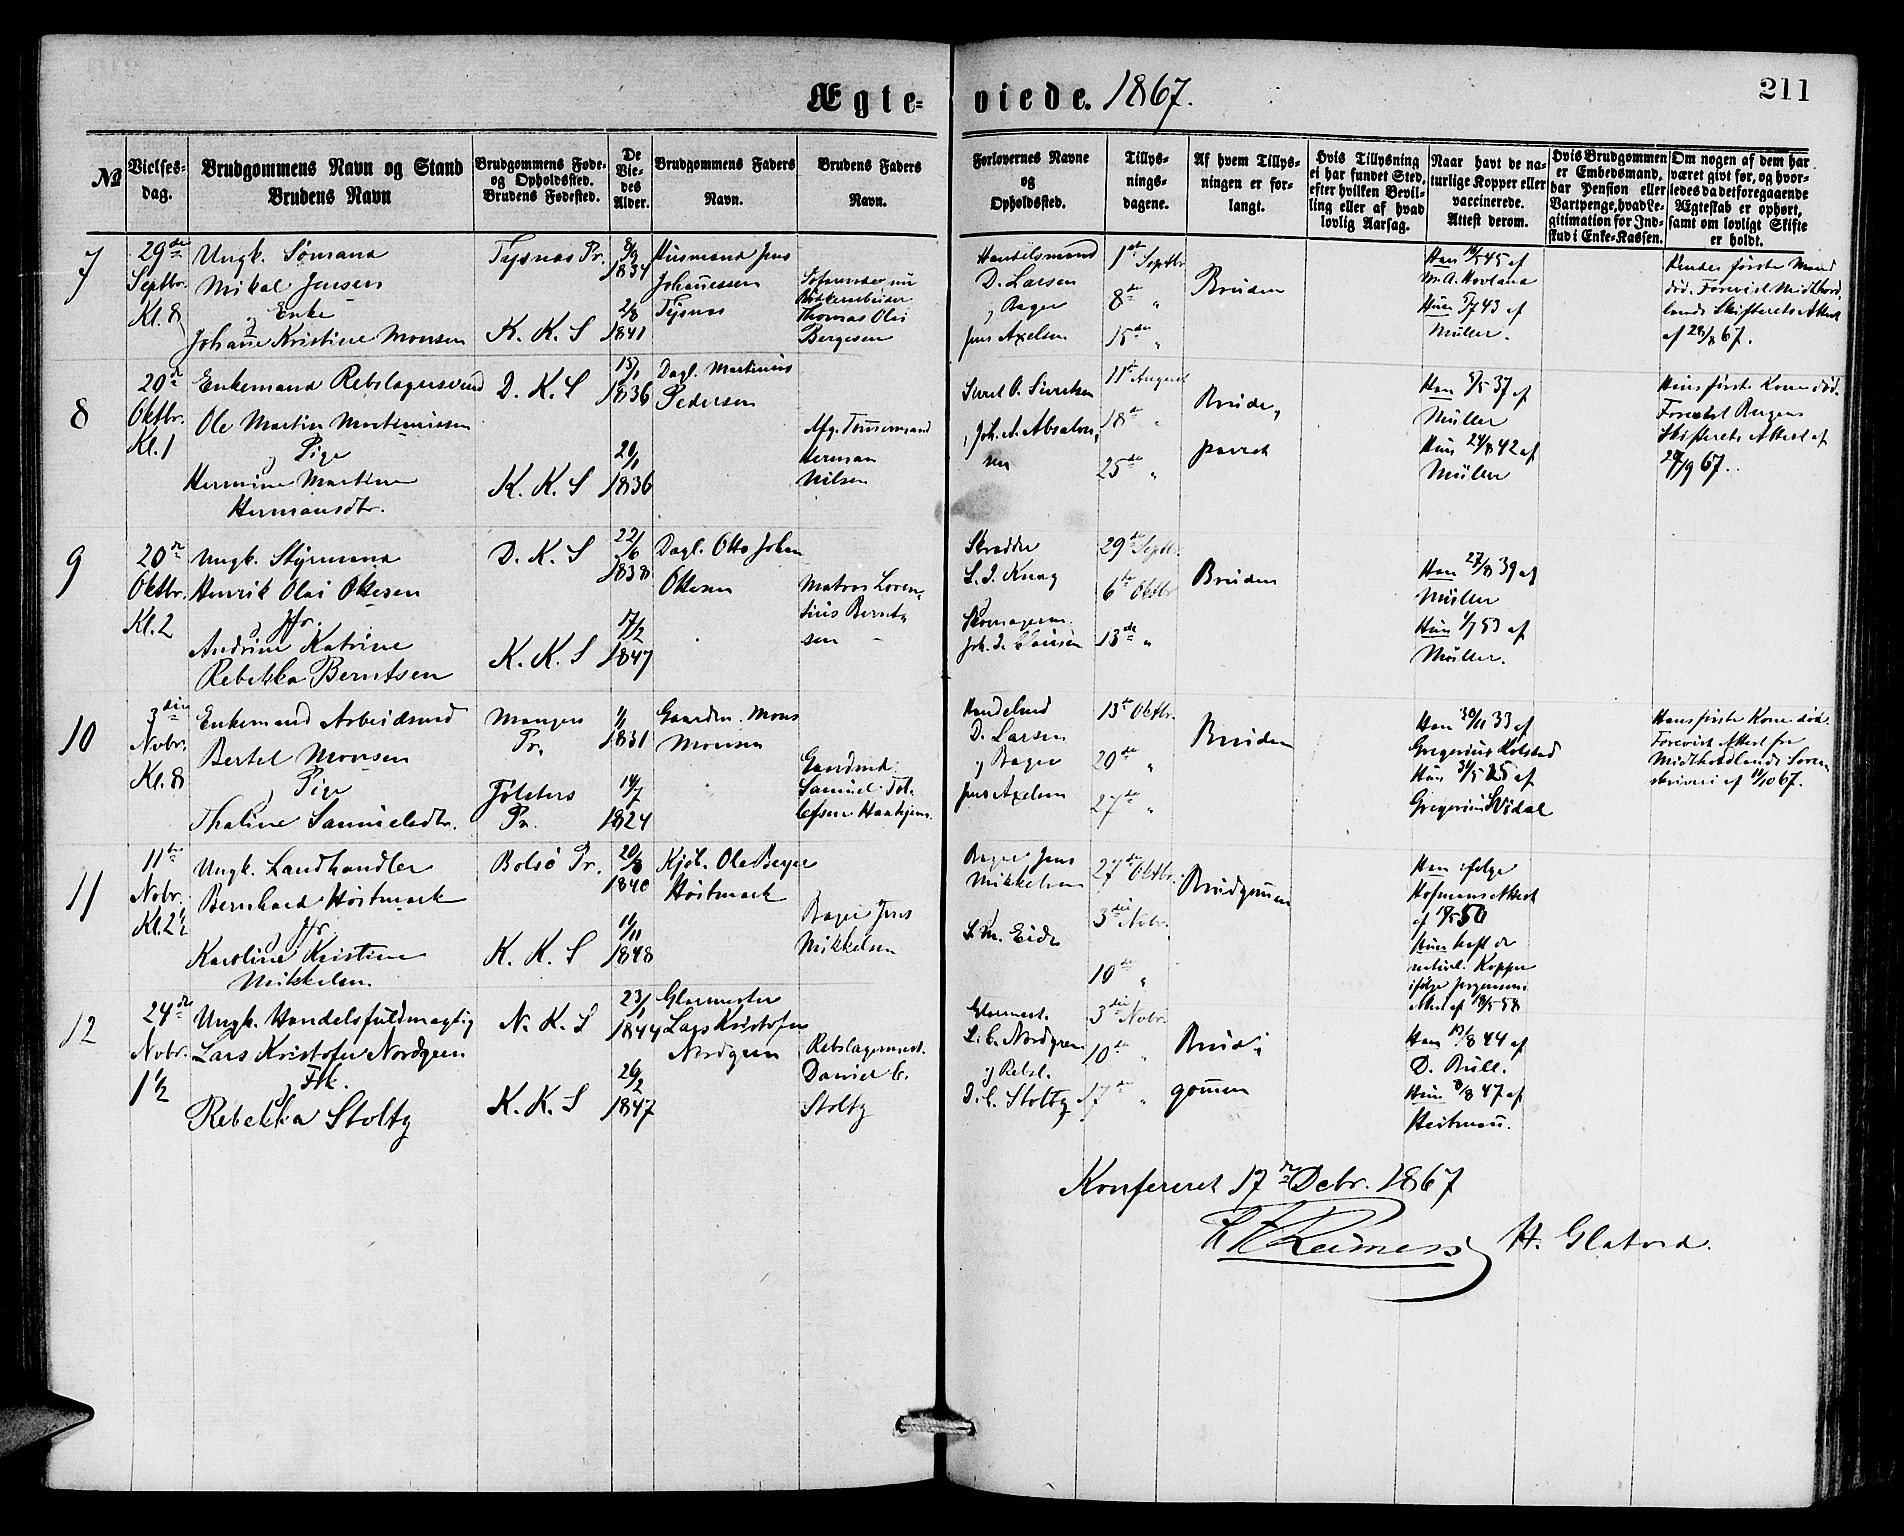 Ægte- viede. 1867.
211
№
Vielses-
dag.
Brudgommens Navn og Stand
Brudens Navn
Brudgommens Føde-
og Opholdssted.
Brudens Fødested.
De
Vie-
des
Alder.
Brudgommens Faders
Navn.
Brudens Faders
Navn.
Forlovernes Navne
og
Opholdssted.
Tillys-
nings-
dagene.
Af hvem Tillys-
ningen er for-
langt.
Hvis Tillysning
ei har fundet Sted,
efter hvilken Bevil-
ling eller af hvad
lovlig Aarsag.
Naar havt de na-
turlige Kopper eller
vaccinerede.
Attest derom.
Hvis Brudgommen
er Embedsmand,
har Pension eller
Vartpenge, hvad Le-
gitimation for Ind-
skud i Enke-Kassen.
Om nogen af dem har
været gift før, og hvor-
ledes da det foregaaende
Ægteskab er ophørt,
samt om lovligt Skifte
er holdt.
7
29de
Septbr.
Kl. 8
Ungk. Sømand
Mikal Jensen
Enke
Johanne Kristine Monsen
Tysnæs Pr.
K. K. S
8/9
1834
2/8
1841
Husmand Jens
Johannessen
Tysnæs
Thomas Olai
Bergesen
Handelsmand
D. Larsen
, Bager
Jens Axelsen
1ste Septbr.
8de "
15de "
Bruden
Han 16/5 45 af
M. A. Hovland
Hun 5/7 43 af
Müller.
Hendes første Mand
død. Forevist Midthord-
lands Skifterets Attest
af 28/8 67.
8
20de
Oktbr.
Kl. 1
Enkemand Rebslagersvend
Ole Martin Martinussen
, Pige
Hermine Martine
Hermansdtr.
D. K. S
K. K. S
15/1
1836
20/1
1836
Dagl. Martinus
Pedersen
Herman
Nilsen
Sivert O. Sivertsen
, Joh. A. Absalon-
sen
11te August
18de "
25de "
Brude-
parret
Han 5/5 37 af
Müller
Hun 24/8 42 af
Müller
Hans første Kone død.
Forevist Bergens
Skifterets Attest af
28/9 67.
9
20de
Oktbr.
Kl. 2
Ungk. Styrmand
Henrik Olai Ottesen
, Jfr.
Andrine Katrine
Rebekka Berntsen
D. K. S
K. K. S
22/6
1838
17/2
1847
Dagl. Otto Johan
Ottesen
Matros Loren-
tius Bernt-
sen
Skrædder
L. J. Knag
Skomagerm.
29de Septbr.
6te Oktbr.
13de "
Bruden
Han 27/8 39 af
Müller
Hun 1/7 53 af
Müller.
10
3die
Novbr.
Kl. 8
Enkemand Arbeidsmd
Bertel Monsen
, Pige
Thaline Samuelsdtr.
Mangers
Pr.
Jølsters
Pr.
1/1
1831
14/7
1824
Gaardm. Mons
Monsen
Gaardmd.
Samuel Tol-
lefsen
Handelsmd
D. Larsen
, Bager
Jens Axelsen
13de Oktbr.
20de "
27de "
Bruden
Han 30/11 33 af
Gregerius Kolstad
Hun 31/5 25 af
Gregerius Svidal
Hans første Kone død.
Forevist Attest fra
Midthordlands Soren-
skriveri af 11/10 67.
11
11te
Novbr.
Kl. 2½
Ungk. Landhandler
Bernhard Høstmark
, Jfr.
Karoline Kristine
Mikkelsen.
Bolsø Pr.
K. K. S
20/8
1840
11/11
1848
Kjøb. Ole Berger
Høstmark
Bager Jens
Mikkelsen
Bager Jens
Mikkelsen
S. M. Eide
27de Oktbr.
3die Novbr.
10de "
Brudgommen
Han ifølge
Hofmans Attest
af 18/5 50
Hun haft de
naturl. Kopper
ifølge Jørgensens
Attest af 18/5 58
12
24de
Novbr.
1½
Ungk. Handelsfuldmægtig
Lars Kristofer Nordgren
, Frk.
Rebekka Stoltz
N. K. S
K. K. S
23/1
1844
26/2
1847
Glarmester
Lars Kristofer
Nordgren
Rebslagermest.
Daniel C.
Stoltz
Glarmest.
L. C. Nordgren
, Rebsl.
D. C. Stoltz
3die Novbr.
10de "
17de "
Brud-
gommen
Han 19/8 44 af
D. Bull.
Hun 8/8 47 af
Heitman.
Konfereret 17de Decbr. 1867
Reimers H. Glatved.